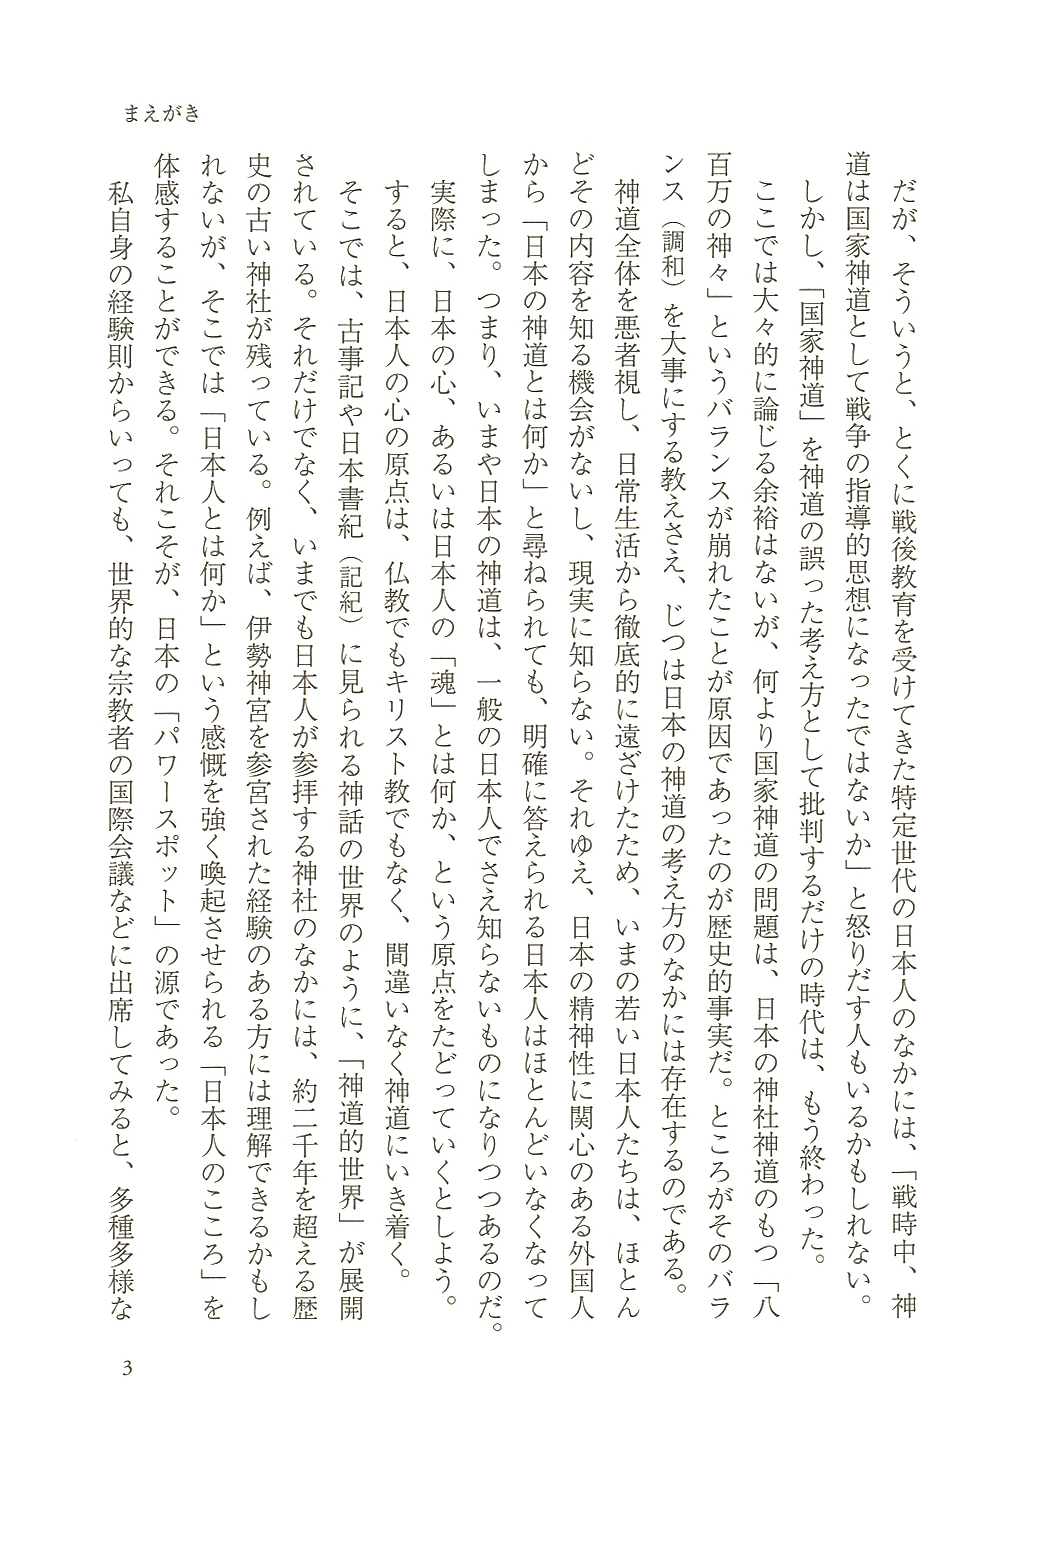 まえがき
だが、そういうと、とくに戦後教育を受けてきた特定世代の日本人のなかには、「戦時中、神
道は国家神道として戦争の指導的思想になったではないか」と怒りだす人もいるかもしれない。
しかし、「国家神道」を神道の誤った考え方として批判するだけの時代は、もう終わった。
ここでは大々的に論じる余裕はないが、何より国家神道の問題は、日本の神社神道のもつ「八
百万の神々」というバランスが崩れたことが原因であったのが歴史的事実だ。ところがそのバラ
ンス（調和）を大事にする教えさえ、じつは日本の神道の考え方のなかには存在するのである。
神道全体を悪者視し、日常生活から徹底的に遠ざけたため、いまの若い日本人たちは、ほとん
どその内容を知る機会がないし、現実に知らない。それゆえ、日本の精神性に関心のある外国人
から「日本の神道とは何か」と尋ねられても、明確に答えられる日本人はほとんどいなくなって
しまった。つまり、いまや日本の神道は、一般の日本人でさえ知らないものになりつつあるのだ。
実際に、日本の心、あるいは日本人の「魂」とは何か、という原点をたどっていくとしよう。
すると、日本人の心の原点は、仏教でもキリスト教でもなく、間違いなく神道にいき着く。
そこでは、古事記や日本書紀（記紀）に見られる神話の世界のように、「神道的世界」が展開
されている。それだけでなく、いまでも日本人が参拝する神社のなかには、約二千年を超える歴
史の古い神社が残っている。例えば、伊勢神宮を参宮された経験のある方には理解できるかもし
れないが、そこでは「日本人とは何か」という感慨を強く喚起させられる「日本人のこころ」を
体感することができる。それこそが、日本の「パワースポット」の源であった。
私自身の経験則からいっても、世界的な宗教者の国際会議などに出席してみると、多種多様な
3